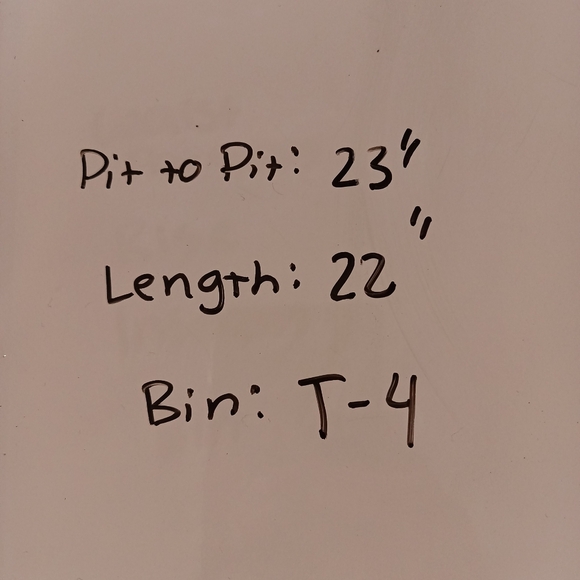 Pit to Pit: 23"
Length: 22"
Bin: T-4